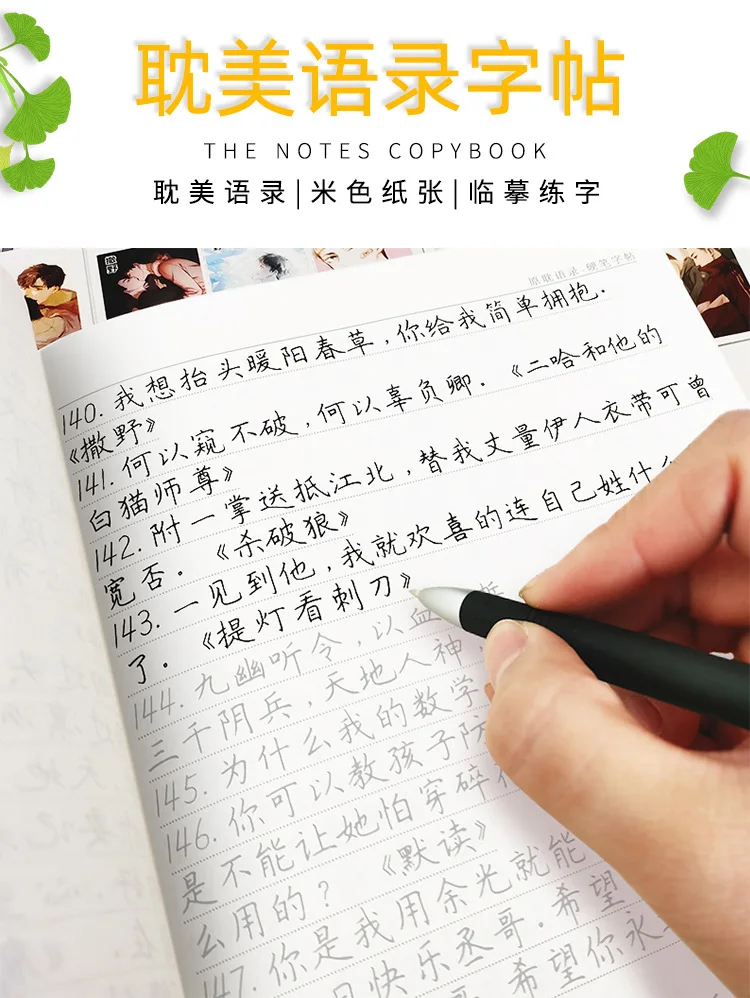 耽美语录字帖
THE NOTES COPYBOOK
耽美语录|米色纸张|临摹练字
撒野
原耽语录·硬笔字帖
140. 我想抬头暖阳春草,你给我简单拥抱.
《撒野》
141. 何以窥不破,何以辜负卿.《二哈和他的
白猫师尊》
142. 附一掌送抵江北,替我丈量伊人衣带可曾
宽否.《杀破狼》
143. 一见到他,我就欢喜的连自己姓什么
了.《提灯看刺刀》
144. 九幽听令,以血
三千阴兵,天地人神
145. 为什么我的数学
146. 你可以教孩子防
是不能让她怕穿碎
么用的?《默读》
147. 你是我用余光就能
日快乐丞哥.希望
希望你永